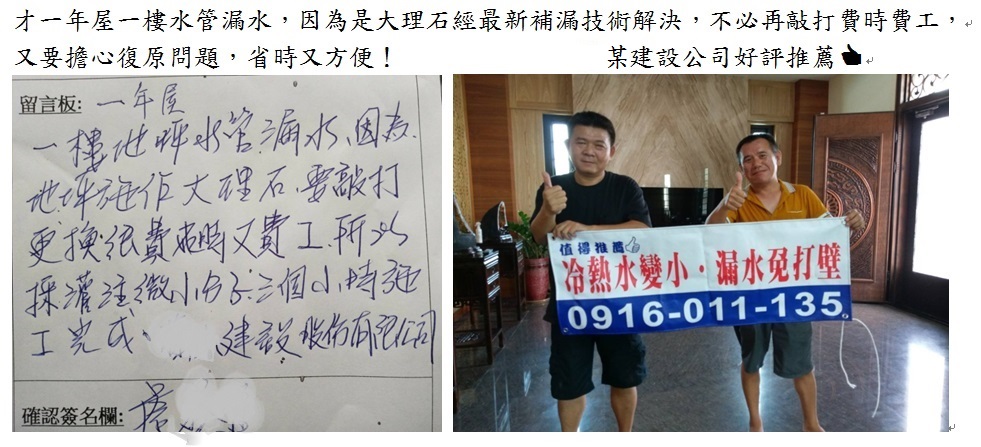 才一年屋一樓水管漏水，因為是大理石經最新補漏技術解決，不必再敲打費時費工，
又要擔心復原問題，省時又方便！ 某建設公司好評推薦
留言板: 一年屋
一樓地坪水管漏水、因為
地坪施作大理石、要敲打
更換很費時又費工、所以
採灌注微小分子、三個小時施
工完成 建設股份有限公司
確認簽名欄:
值得推薦
冷熱水變小・漏水免打壁
0916-011-135